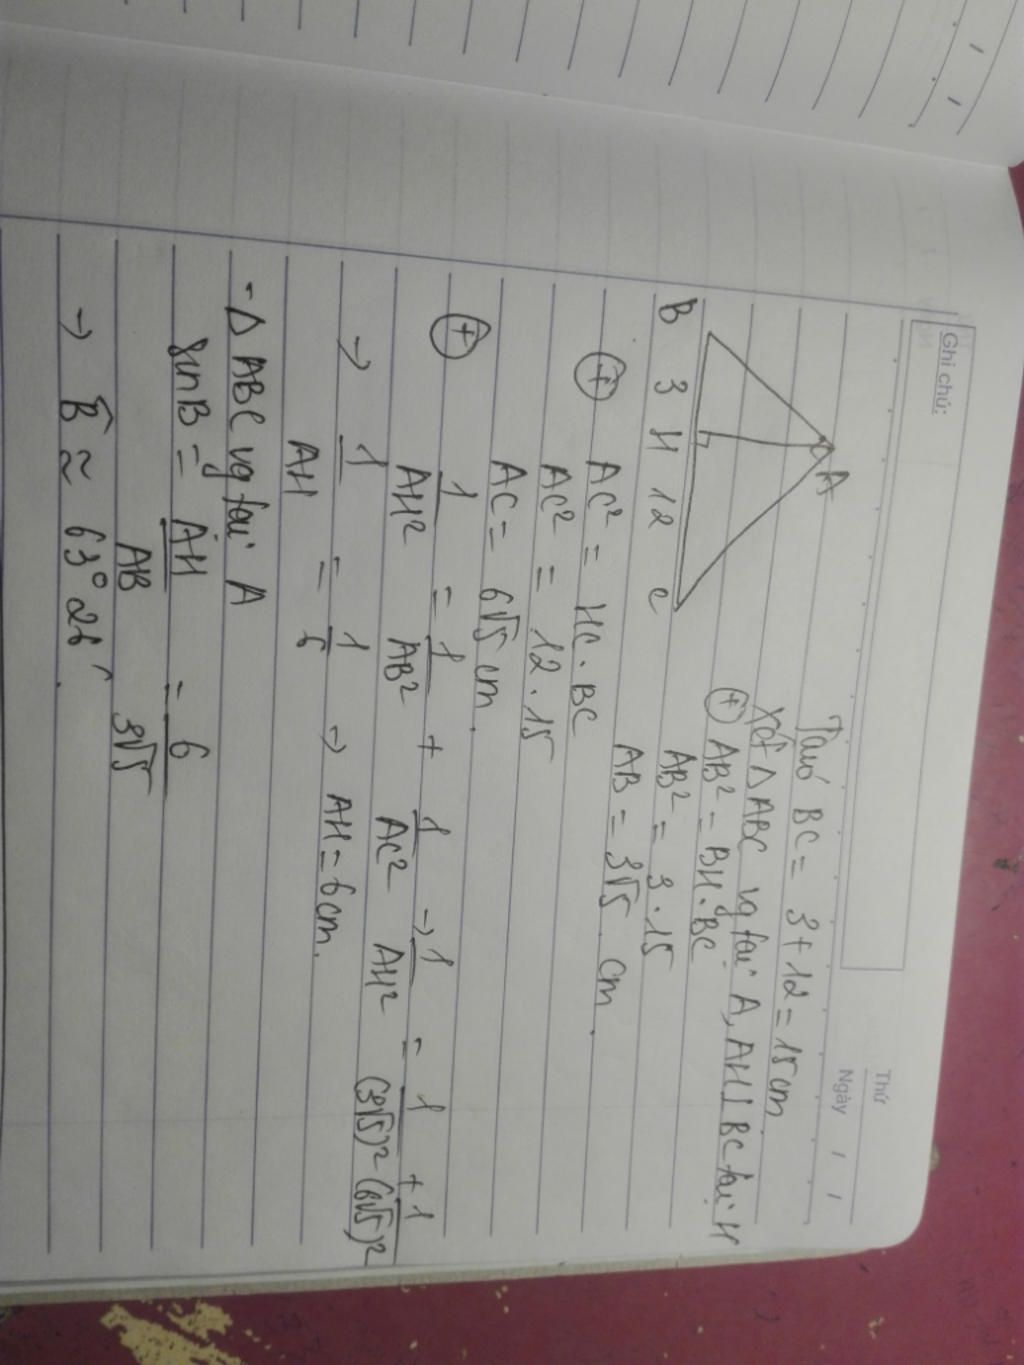 Ghi chú:
Thứ
Ngày / /
A
B 3 H 12 C
Ta có BC = 3 + 12 = 15 cm
xét △ABC vg tại A, AH⊥BC tại H
⊕ AB² = BH.BC
AB² = 3.15
AB = 3√5 cm.
⊕ AC² = HC.BC
AC² = 12.15
AC = 6√5 cm.
⊕ 1/AH² = 1/AB² + 1/AC² → 1/AH² = 1/(3√5)² + 1/(6√5)²
→ 1/AH = 1/6 → AH = 6cm.
- △ABC vg tại A
sinB = AH/AB = 6/3√5
→ B̂ ≈ 63°26'.